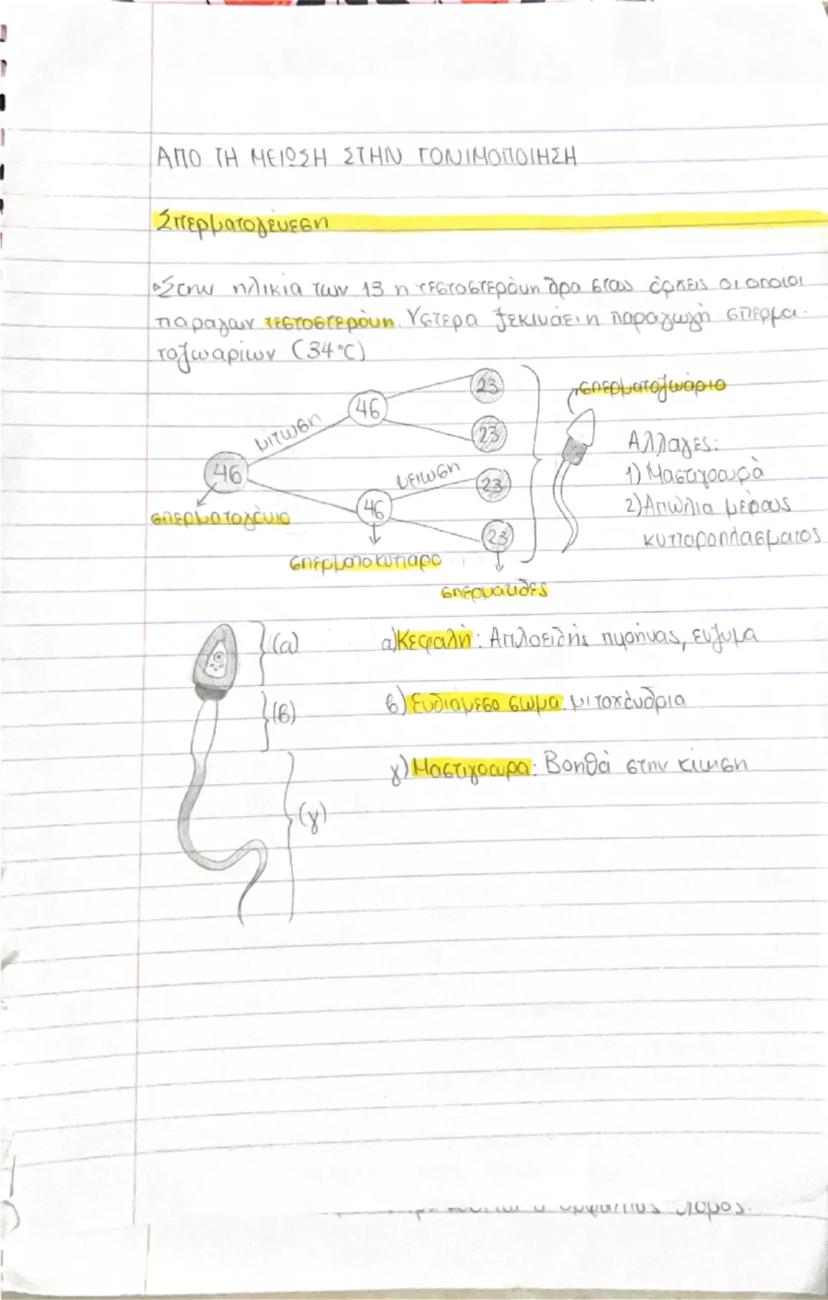 ΑΠΟ ΤΗ ΜΕΙΩΣΗ ΣΤΗΝ ΓΟΝΙΜΟΠΟΙΗΣΗ
Σπερματογένεση
Στην ηλικία των 13 η τεστοστερόνη δρα στας όρχεις οι οποίοι
παράγουν τεστοστερόνη. Υστερα ξεκινάει η παραγωγή σπερμα-
τοζωαρίων (34°C)
46
μίτωση
46
23
23
46
μείωση
23
23
σπερματογόνιο
σπερματοκύτταρο
σπερματίδες
σπερματοζωάριο
Αλλαγές:
1) Μαστιγοουρά
2) Απώλια μέρους
κυτταροπλάσματος
(α)
(β)
(γ)
α) Κεφαλή: Απλοειδής πυρήνας, ένζυμα
β) Ενδιάμεσο σώμα: μιτοχόνδρια
γ) Μαστιγοουρα: Βοηθά στην κίνηση